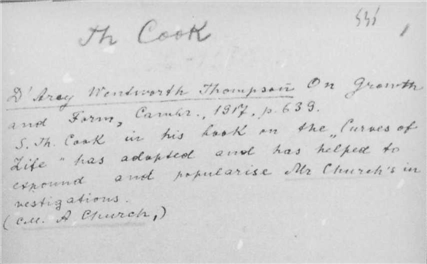 551 1
Th Cook
D'Arcy Wentworth Thompson On Growth
and Form, Cambr., 1917, p. 639.
S. Th. Cook in his book on the „Curves of
Life" has adopted and has helped to
expound and popularise Mr Church's in
vestigations.
(см. A Church,)